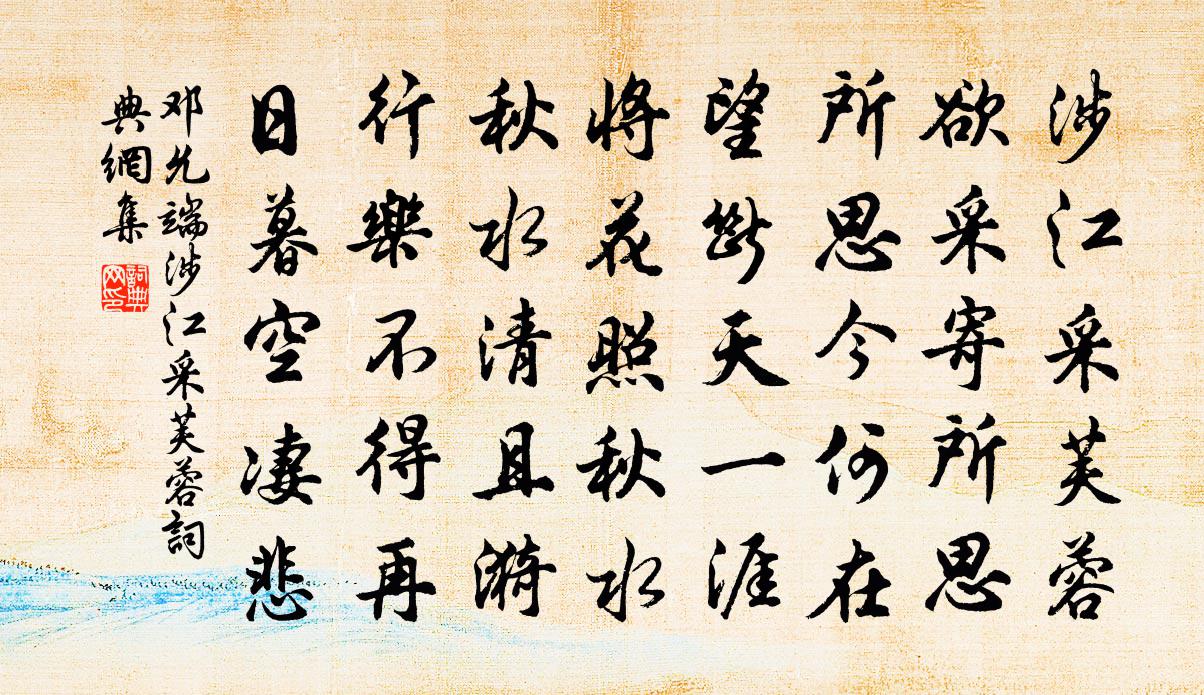 涉江采芙蓉
欲采寄所思
所思今何在
望斷天一涯
將花照秋水
秋水清且漪
行樂不得再
日暮空凄悲
邓允端涉江采芙蓉詞
典網集
詞典
网印